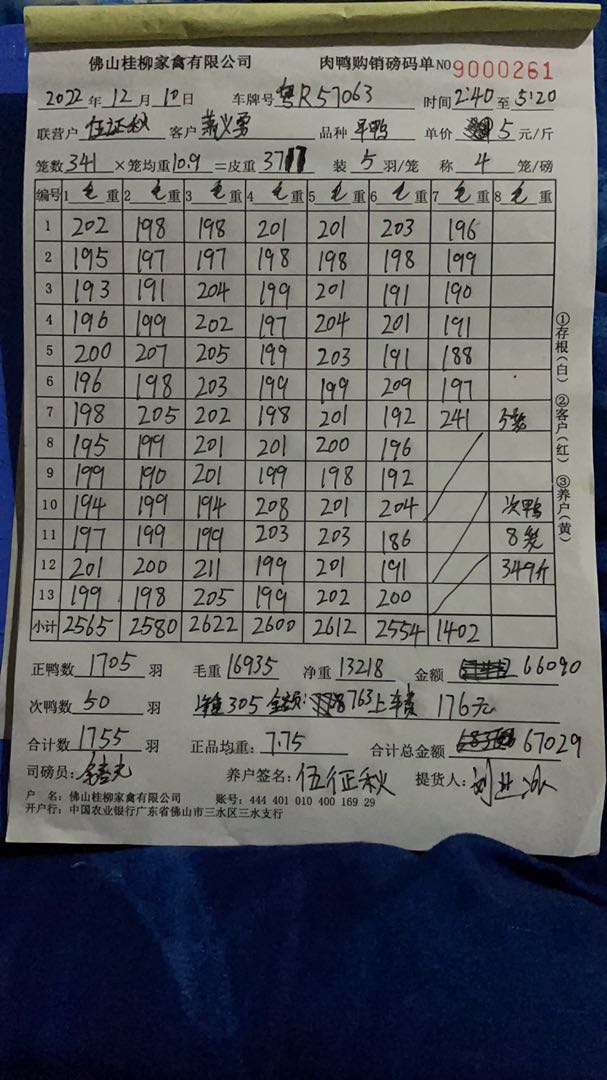 佛山桂柳家禽有限公司 肉鸭购销磅码单 NO 9000261
2022年12月10日 车牌号 粤R57063 时间2:40至5:20
联营户 伍征秋 客户 品种 单价 5元/斤
笼数341×笼均重10.9=皮重3717 装5羽/笼 称4笼/磅
编号 1毛重 2毛重 3毛重 4毛重 5毛重 6毛重 7毛重 8毛重
1 202 198 198 201 201 203 196
2 195 197 197 198 198 198 199
3 193 191 204 199 201 191 190
4 196 199 202 197 204 201 191
5 200 207 205 199 203 191 188
6 196 198 203 199 199 209 197
7 198 205 202 198 201 192 241 5笼
8 195 199 201 201 200 196
9 199 190 201 199 198 192
10 194 199 194 208 201 204 次鸭
11 197 199 199 203 203 186 8笼
12 201 200 211 199 201 191 349斤
13 199 198 205 199 202 200
小计 2565 2580 2622 2600 2612 2554 1402
正鸭数1705羽 毛重16935 净重13218 金额 66090
次鸭数50羽 305 金额:763 上车费176元
合计数1755羽 正品均重:7.75 合计总金额 67029
司磅员: 养户签名:伍征秋 提货人:
户 名:佛山桂柳家禽有限公司 账号:444 401 010 400 169 29
开户行:中国农业银行广东省佛山市三水区三水支行
①存根(白) ②客户(红) ③养户(黄)